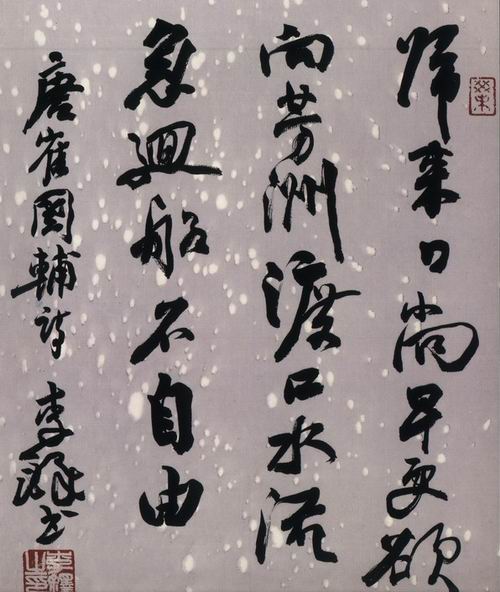 癸未
歸來日尚早更欲
向芳洲渡口水流
急迴船不自由
唐崔國輔詩 李鐸書
李鐸之印